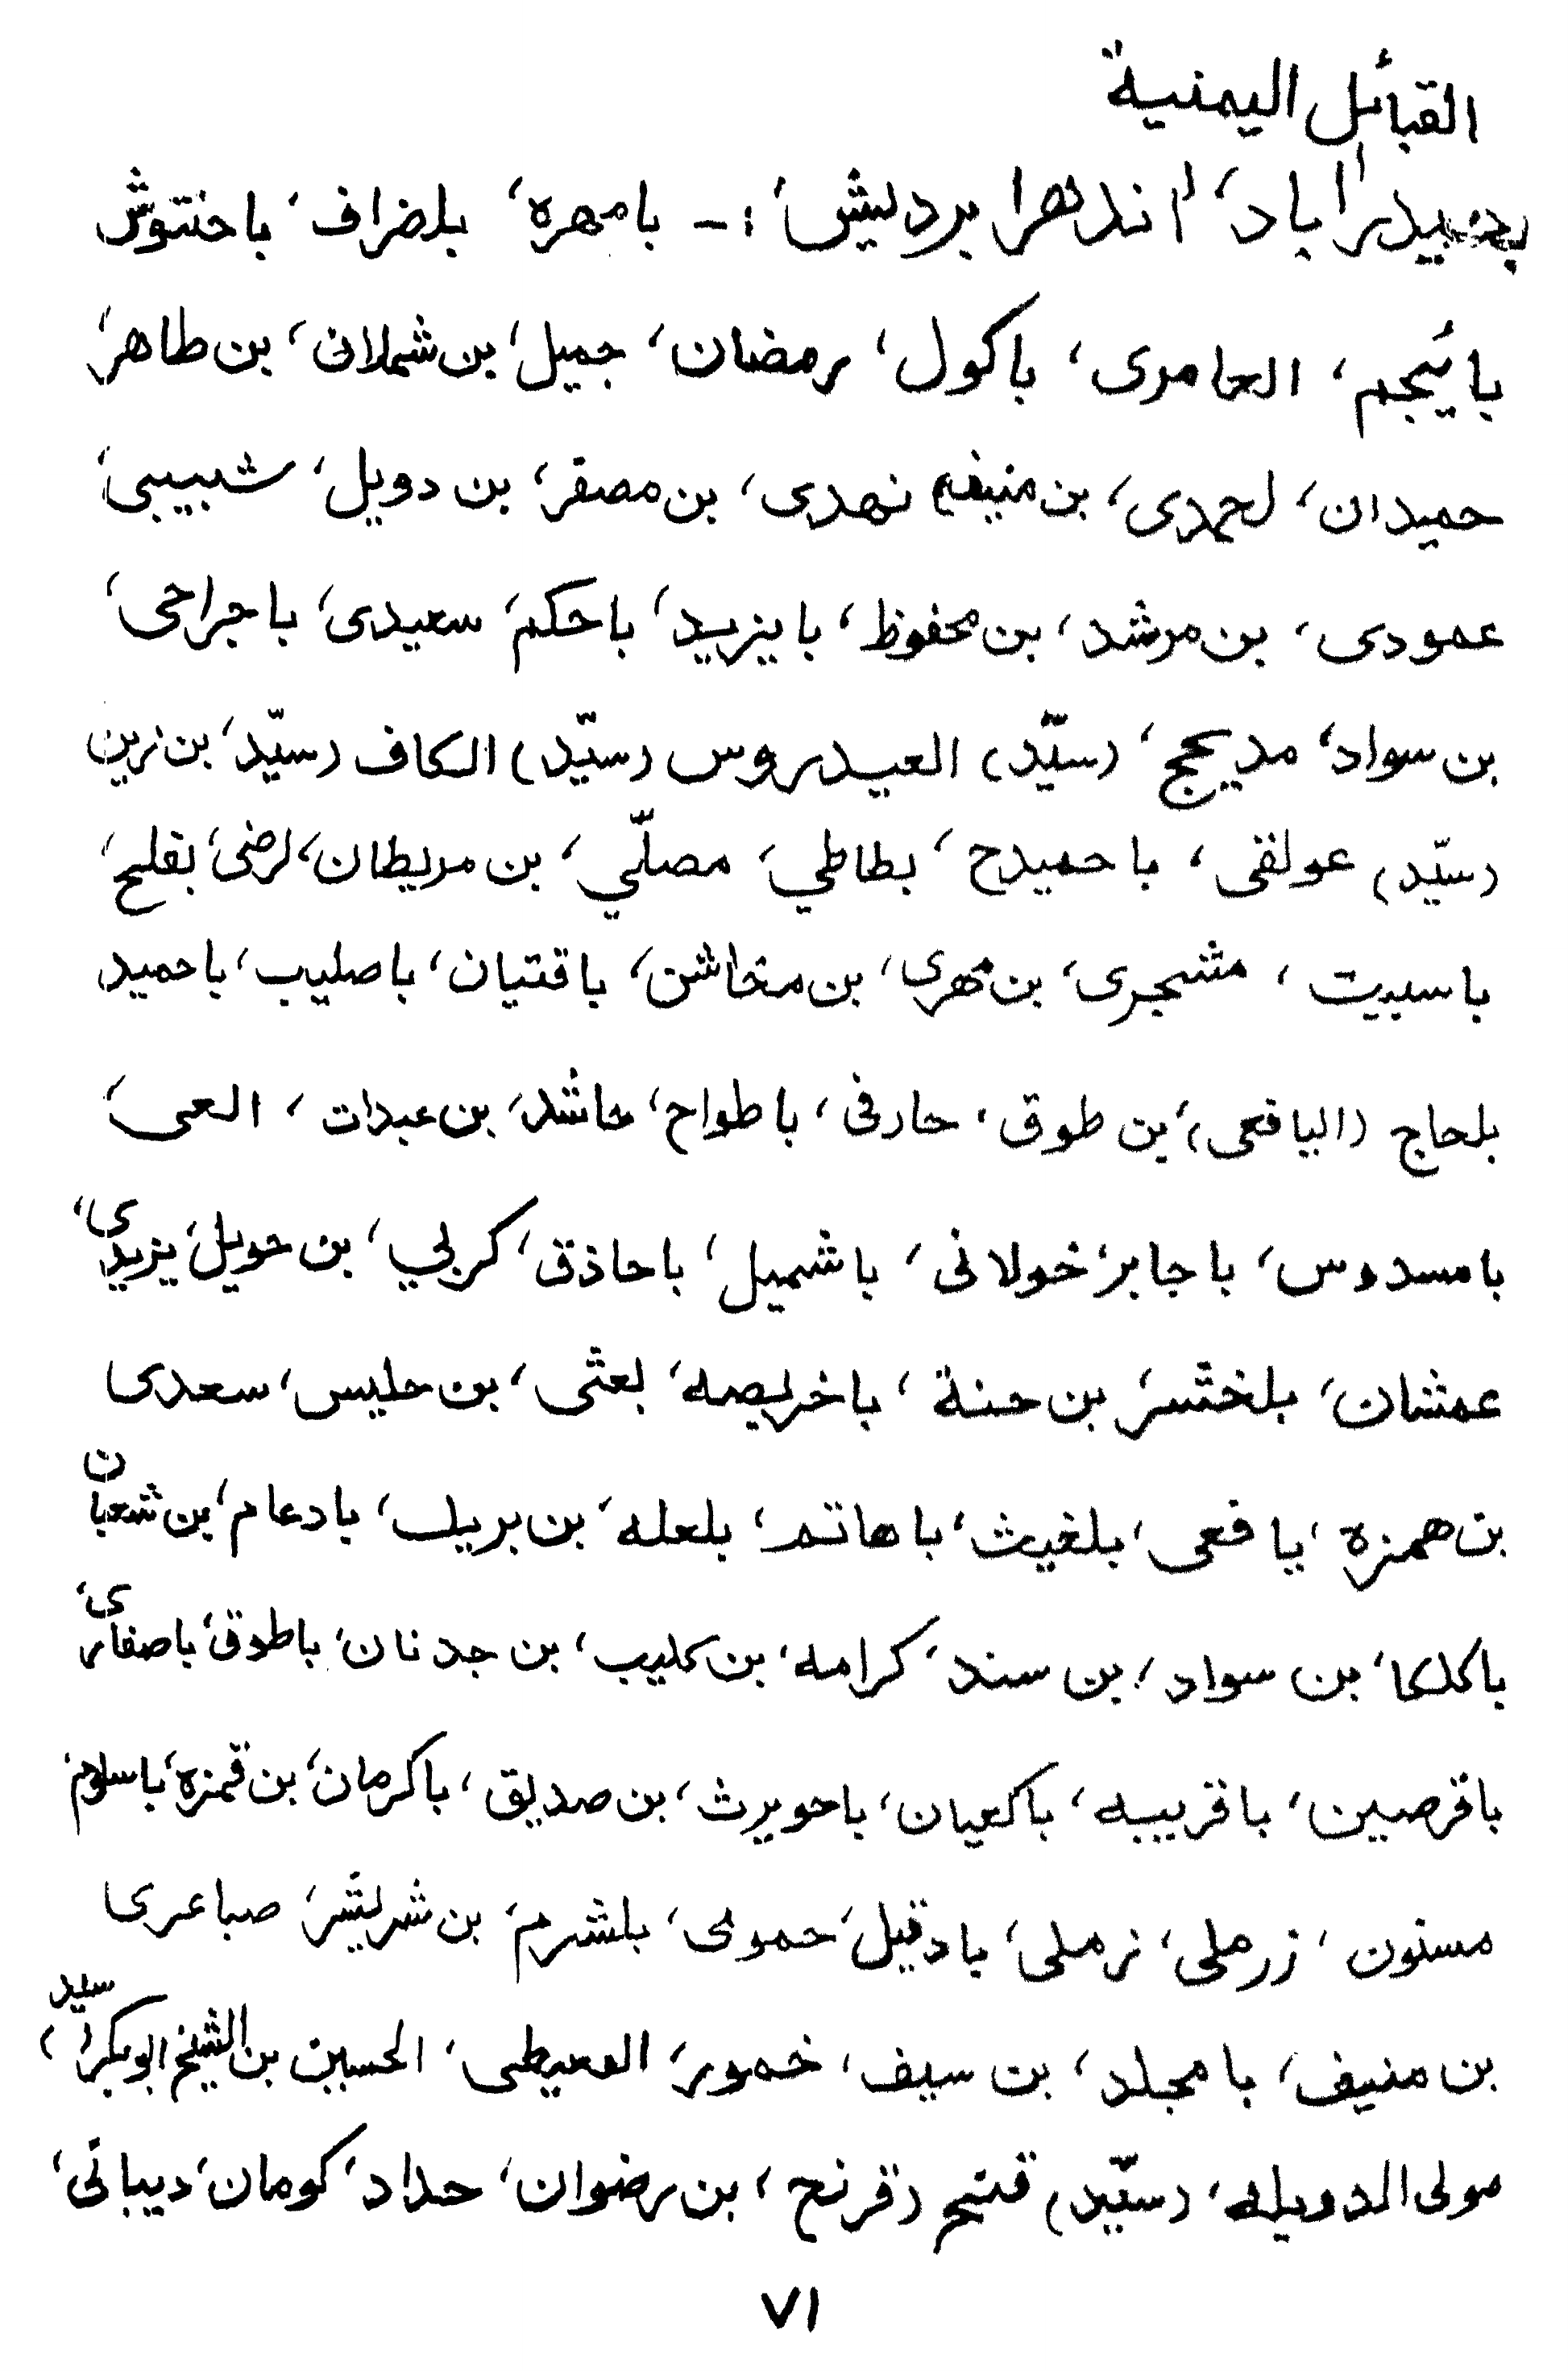 القبائل اليمنية
بحيدرآباد، اندهرا برديش، :- بامهره، بلضراف، باحنتوش
بائيجم، العامري، باكول، رمضان، جميل، بن شملان، بن طاهر،
حميدان، لحمدي، بن منيف، نهدي، بن مصقر، بن دويل، شبيبي،
عمودي، بن مرشد، بن محفوظ، بايزيد، باحكم، سعيدي، باجراحي،
بن سواد، مديحج، (سيّد) العيدروس (سيّد) الكاف (سيّد، بن زين
(سيّد) عولقي، باحميدح، بطاطي، مصلّي، بن مريطان، لرضي، بقليح،
باسبيت، مشجري، بن مهري، بن مخاشن، باقتيان، باصليب، باحميد
بلحاج (اليافعي)، بن طوق، حارفي، باطواح، حاشد، بن عبدات، العي،
بامسدوس، باجابر، خولاني، باشميل، باحاذق، كربي، بن حويل، يزيدي،
عمشان، بلخشر، بن حنة، باخريصه، بعثي، بن حليس، سعدي
بن همزة، يافعي، بلغيث، باهاتم، بلعله، بن بريك، بادعام، بن شعبان
باكلكا، بن سواد، بن سند، كرامه، بن كليب، بن جدنان، باطوق، باصفاري،
باقرصين، باقريبه، باكعيان، باحويرث، بن صديق، باكرمان، بن قمزه، باسلوم،
مسنون، زرملي، نرملي، بادقيل، حمودي، بلشرم، بن شريشر، صباعري
بن منيف، بامجلد، بن سيف، خمور، القعيطي، الحسين بن الشيخ ابوبكر (سيد)،
مولى الدويله، (سيّد) فتح (فرنح، بن رضوان، حداد، كومان، ديباني،
٧١